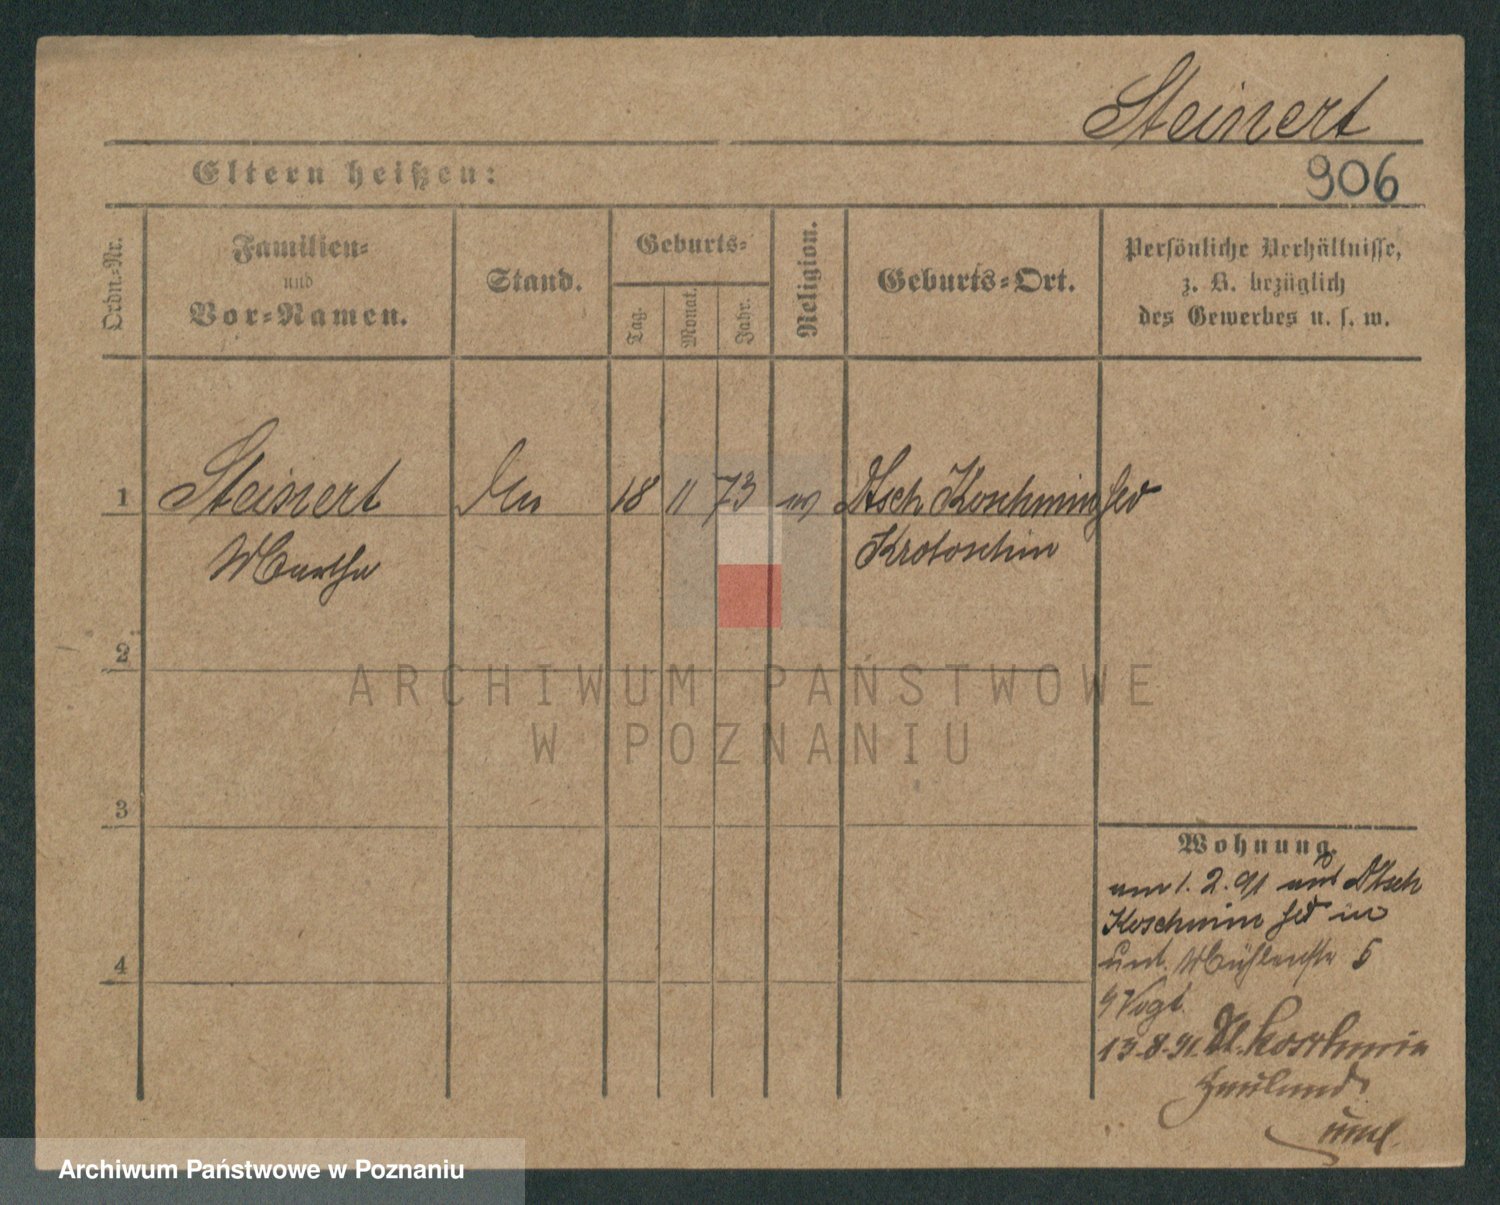 Steinert
Eltern heißen:
906
Ordn.=Nr.
Familien=
und
Vor=Namen.
Stand.
Geburts=
Tag.
Monat.
Jahr.
Religion.
Geburts=Ort.
Persönliche Verhältnisse,
z. B. bezüglich
des Gewerbes u. s. w.
1 Steinert 18 11 73 Dtsch Koschmin
Martha Krotoschin
2
3
4
Wohnung.
am 1. 2. 91 aus Dtsch
Koschmin in
unt. Mühlenstr 5
Vogt
13.8.91. Dt. Koschmin
ARCHIWUM PAŃSTWOWE
W POZNANIU
Archiwum Państwowe w Poznaniu